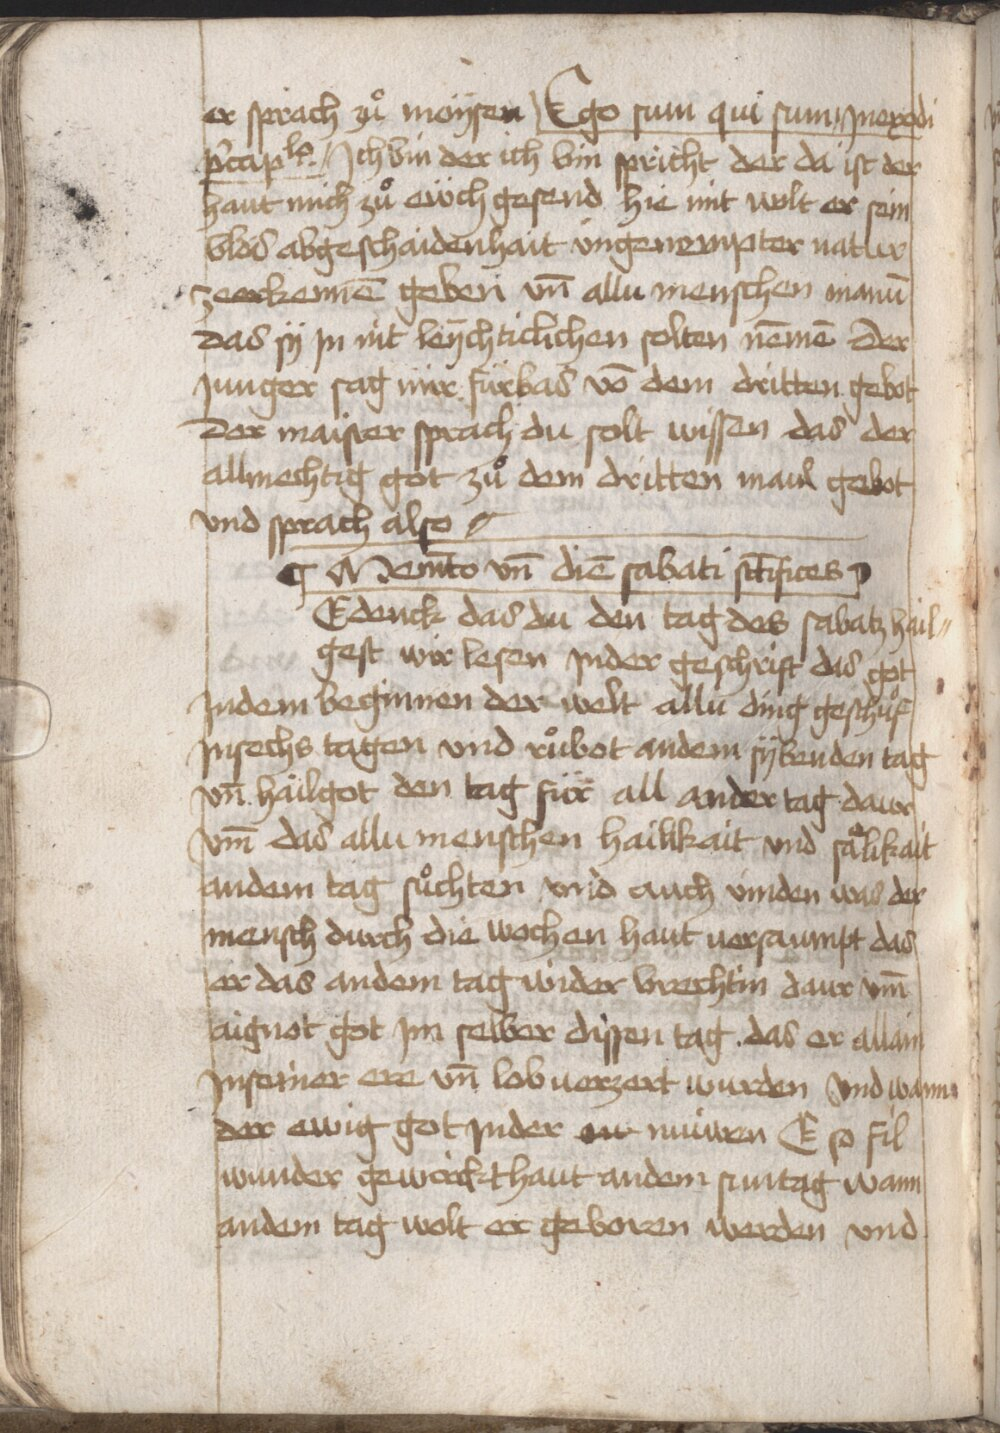 er sprach zuͦ moÿsen Ego sum qui sum Jn exodi
pͦ capłͦ. Jch bin der ich bin spricht der da ist der
haut mich zuͦ eẅch gesend hie mit wolt er sein
blos abgeschaidenhait vngenempter natur
ze erkennē geben vn̄ allu menschen manū
das sÿ jn nit leÿchticlichen solten nēmē Der
Junger sag mir fürbas vō dem dritten gebot
Der maister sprach du solt wissen das der
allmechtig got zuͦ dem dritten maul gebot
vnd sprach also
¶ Mem̄to vn̄ diē sabati sctīfices
Edenck das du den tag des sabatz hail〃
gest wir lesen Jn der geschrift das got
Jn dem beginnen der welt allu ding geschuͦf
Jn sechs tagen vnd ruͦbot an dem sÿbenden tag
vn̄ hailgot den tag für all ander tag daur
vm̄ das allu menschen hailikait vnd sälikait
an dem tag suͦchten vnd auch vinden was der
mensch durch die wochen haut versaumpt das
er das an dem tag wider brechtin daur vm̄
aignot got jm selber dissen tag. das er allain
Jn seiner ere vn̄ lob verzert wurden Vnd wann
der ewig got Jn der nuiwen E so fil
wunder gewirckt haut an dem suntag wann
an dem tag wolt er geboren werden vnd